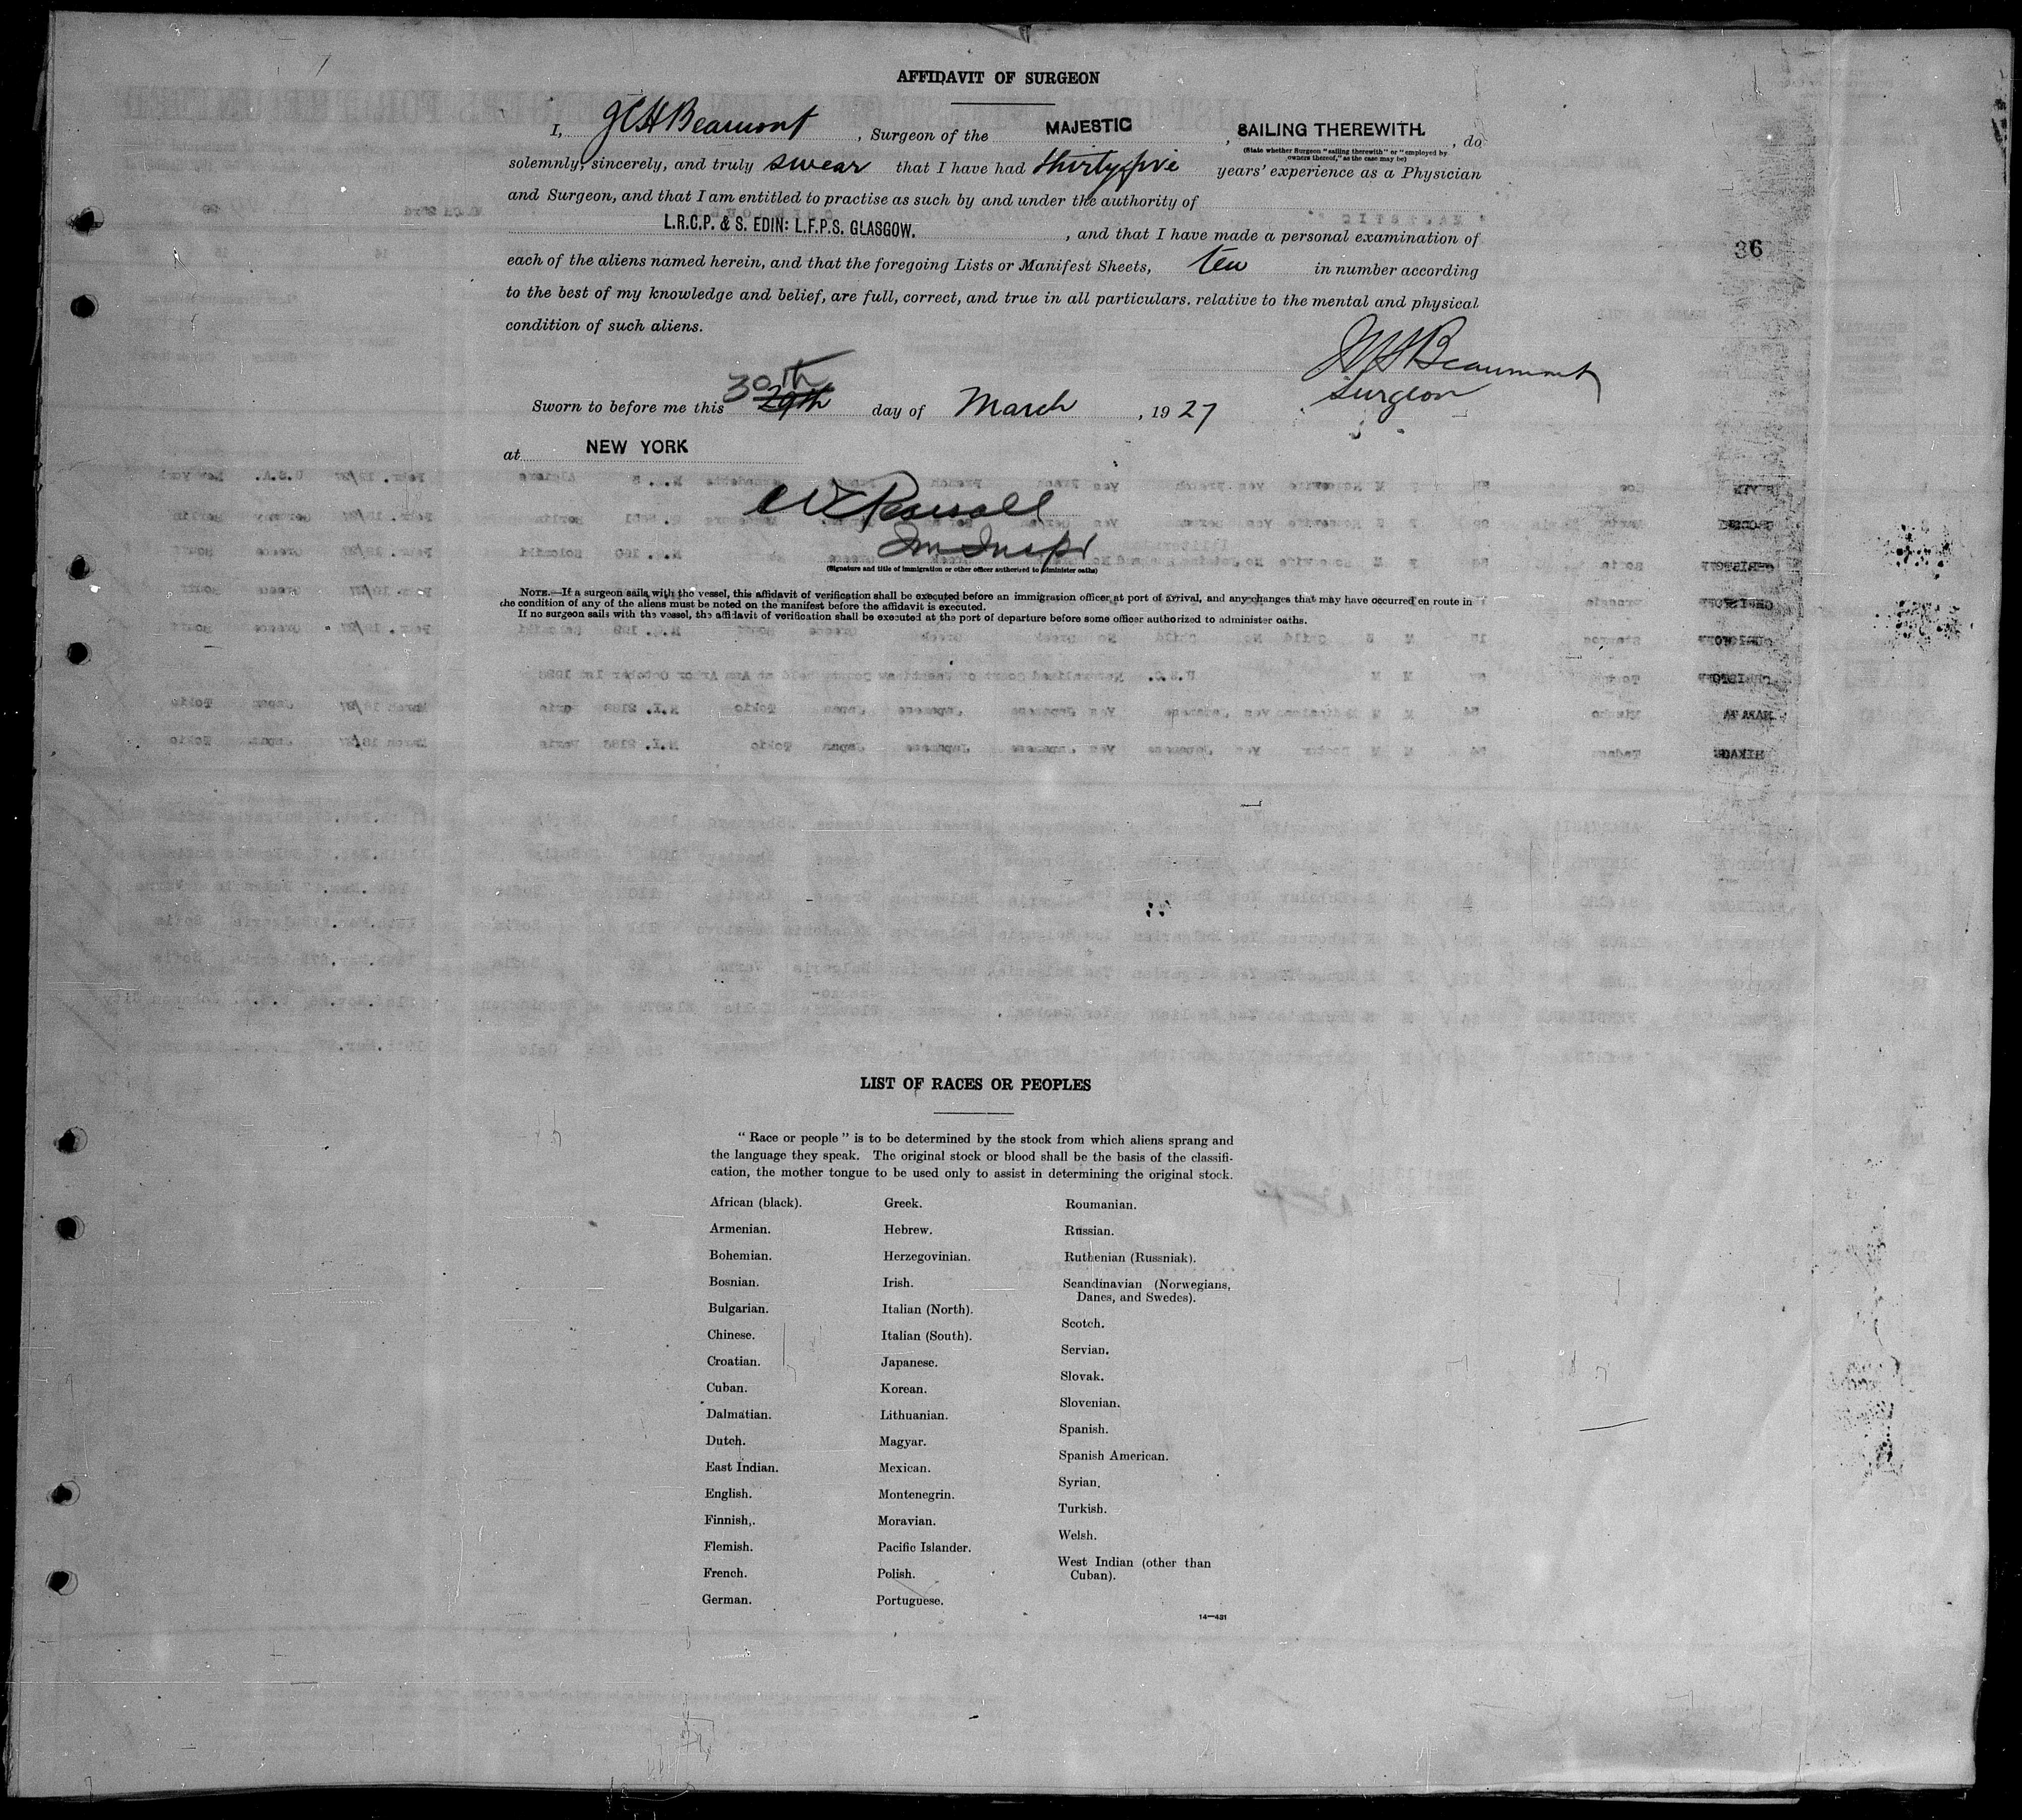 AFFIDAVIT OF SURGEON
I, J C H Beaumont, Surgeon of the MAJESTIC, SAILING THEREWITH., do
(State whether Surgeon "sailing therewith" or "employed by
owners thereof," as the case may be)
solemnly, sincerely, and truly swear that I have had thirty five years' experience as a Physician
and Surgeon, and that I am entitled to practise as such by and under the authority of
L.R.C.P. & S. EDIN: L.F.P.S. GLASGOW., and that I have made a personal examination of
36
each of the aliens named herein, and that the foregoing Lists or Manifest Sheets, ten in number according
to the best of my knowledge and belief, are full, correct, and true in all particulars. relative to the mental and physical
condition of such aliens.
Beaumont
Surgeon
30th
Sworn to before me this 29th day of March, 1927
at NEW YORK
(Signature and title of immigration or other officer authorized to administer oaths)
NOTE.—If a surgeon sails with the vessel, this affidavit of verification shall be executed before an immigration officer at port of arrival, and any changes that may have occurred en route in
the condition of any of the aliens must be noted on the manifest before the affidavit is executed.
If no surgeon sails with the vessel, the affidavit of verification shall be executed at the port of departure before some officer authorized to administer oaths.
LIST OF RACES OR PEOPLES
"Race or people" is to be determined by the stock from which aliens sprang and
the language they speak. The original stock or blood shall be the basis of the classifi-
cation, the mother tongue to be used only to assist in determining the original stock.
African (black).
Armenian.
Bohemian.
Bosnian.
Bulgarian.
Chinese.
Croatian.
Cuban.
Dalmatian.
Dutch.
East Indian.
English.
Finnish.
Flemish.
French.
German.
Greek.
Hebrew.
Herzegovinian.
Irish.
Italian (North).
Italian (South).
Japanese.
Korean.
Lithuanian.
Magyar.
Mexican.
Montenegrin.
Moravian.
Pacific Islander.
Polish.
Portuguese.
Roumanian.
Russian.
Ruthenian (Russniak).
Scandinavian (Norwegians,
Danes, and Swedes).
Scotch.
Servian.
Slovak.
Slovenian.
Spanish.
Spanish American.
Syrian.
Turkish.
Welsh.
West Indian (other than
Cuban).
14—431